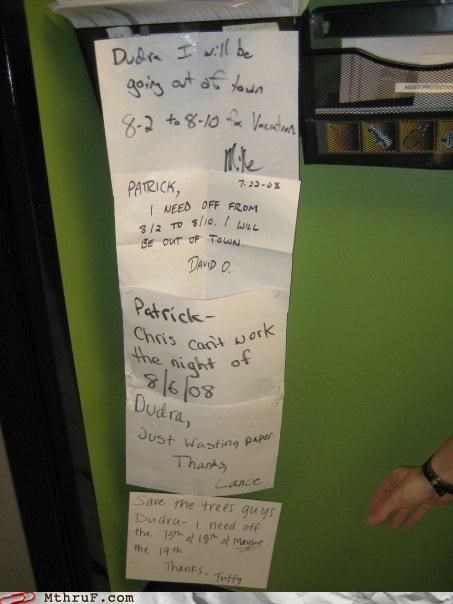 Dudra I will be
going out of town
8-2 to 8-10 for Vacation
Mike
7-22-08
PATRICK,
I NEED OFF FROM
8/2 TO 8/10. I WILL
BE OUT OF TOWN.
DAVID O.
Patrick-
Chris can't work
the night of
8/6/08
Dudra,
Just Wasting paper.
Thanks,
Lance
Save the trees guys.
Dudra- I need off
the 13th & 18th & Maybe
the 19th
Thanks- Tuffy
ASSET PROTECTION
MThruF.com